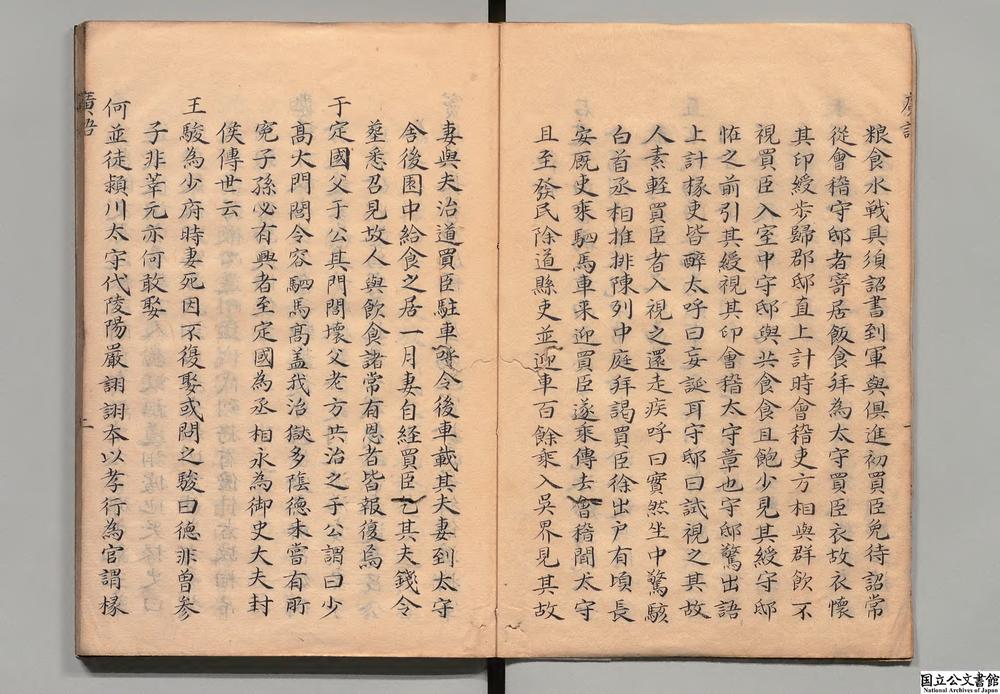 粮食水戰具須詔書到軍與俱進初買臣免待詔常
從會稽守邸者寄居飯食拜為太守買臣衣故衣懷
其印綬歩歸郡邸直上計時會稽吏方相與群飲不
視買臣入室中守邸與共食食且飽少見其綬守邸
恠之前引其綬視其印會稽太守章也守邸驚出語
上計掾吏皆醉太呼曰妄誕耳守邸曰試視之其故
人素輕買臣者入視之還走疾呼曰實然坐中驚駭
白首丞相推排陳列中庭拜謁買臣徐出戸有頃長
安廐吏乘駟馬車来迎買臣遂乘傳去會稽聞太守
且至發民除道縣吏並迎車百餘乘入吳界見其故
妻與夫治道買臣駐車呼令後車載其夫妻到太守
舍後園中給食之居一月妻自経買臣乞其夫錢令
塟悉召見故人與飲食諸常有恩者皆報復焉
于定國父于公其門閭壞父老方共治之于公謂曰少
髙大門閭令容駟馬髙盖我治獄多隂德未嘗有所
寃子孫必有興者至定國為丞相永為御史大夫封
侯傳世云
王駿為少府時妻死因不復娶或問之駿曰德非曾参
子非莘元亦何敢娶
何並徒頴川太守代陵陽嚴詡詡本以孝行為官謂掾